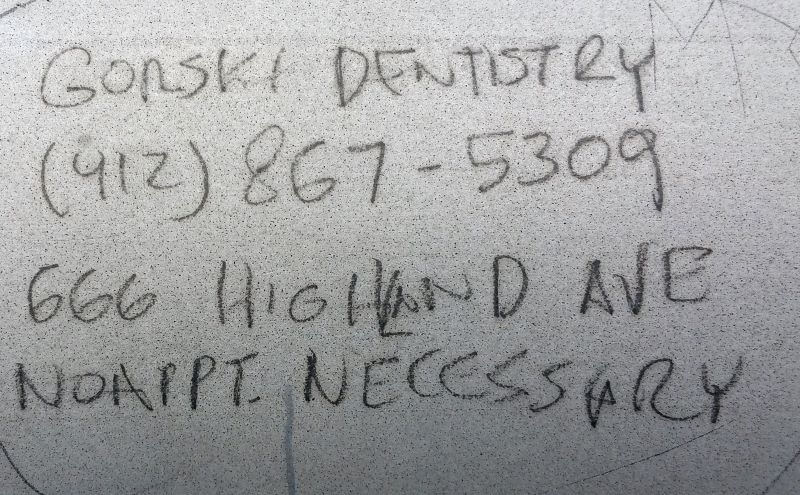 GORSKI DENTISTRY
(412) 867-5309
666 HIGHLAND AVE
NO APPT. NECESSARY